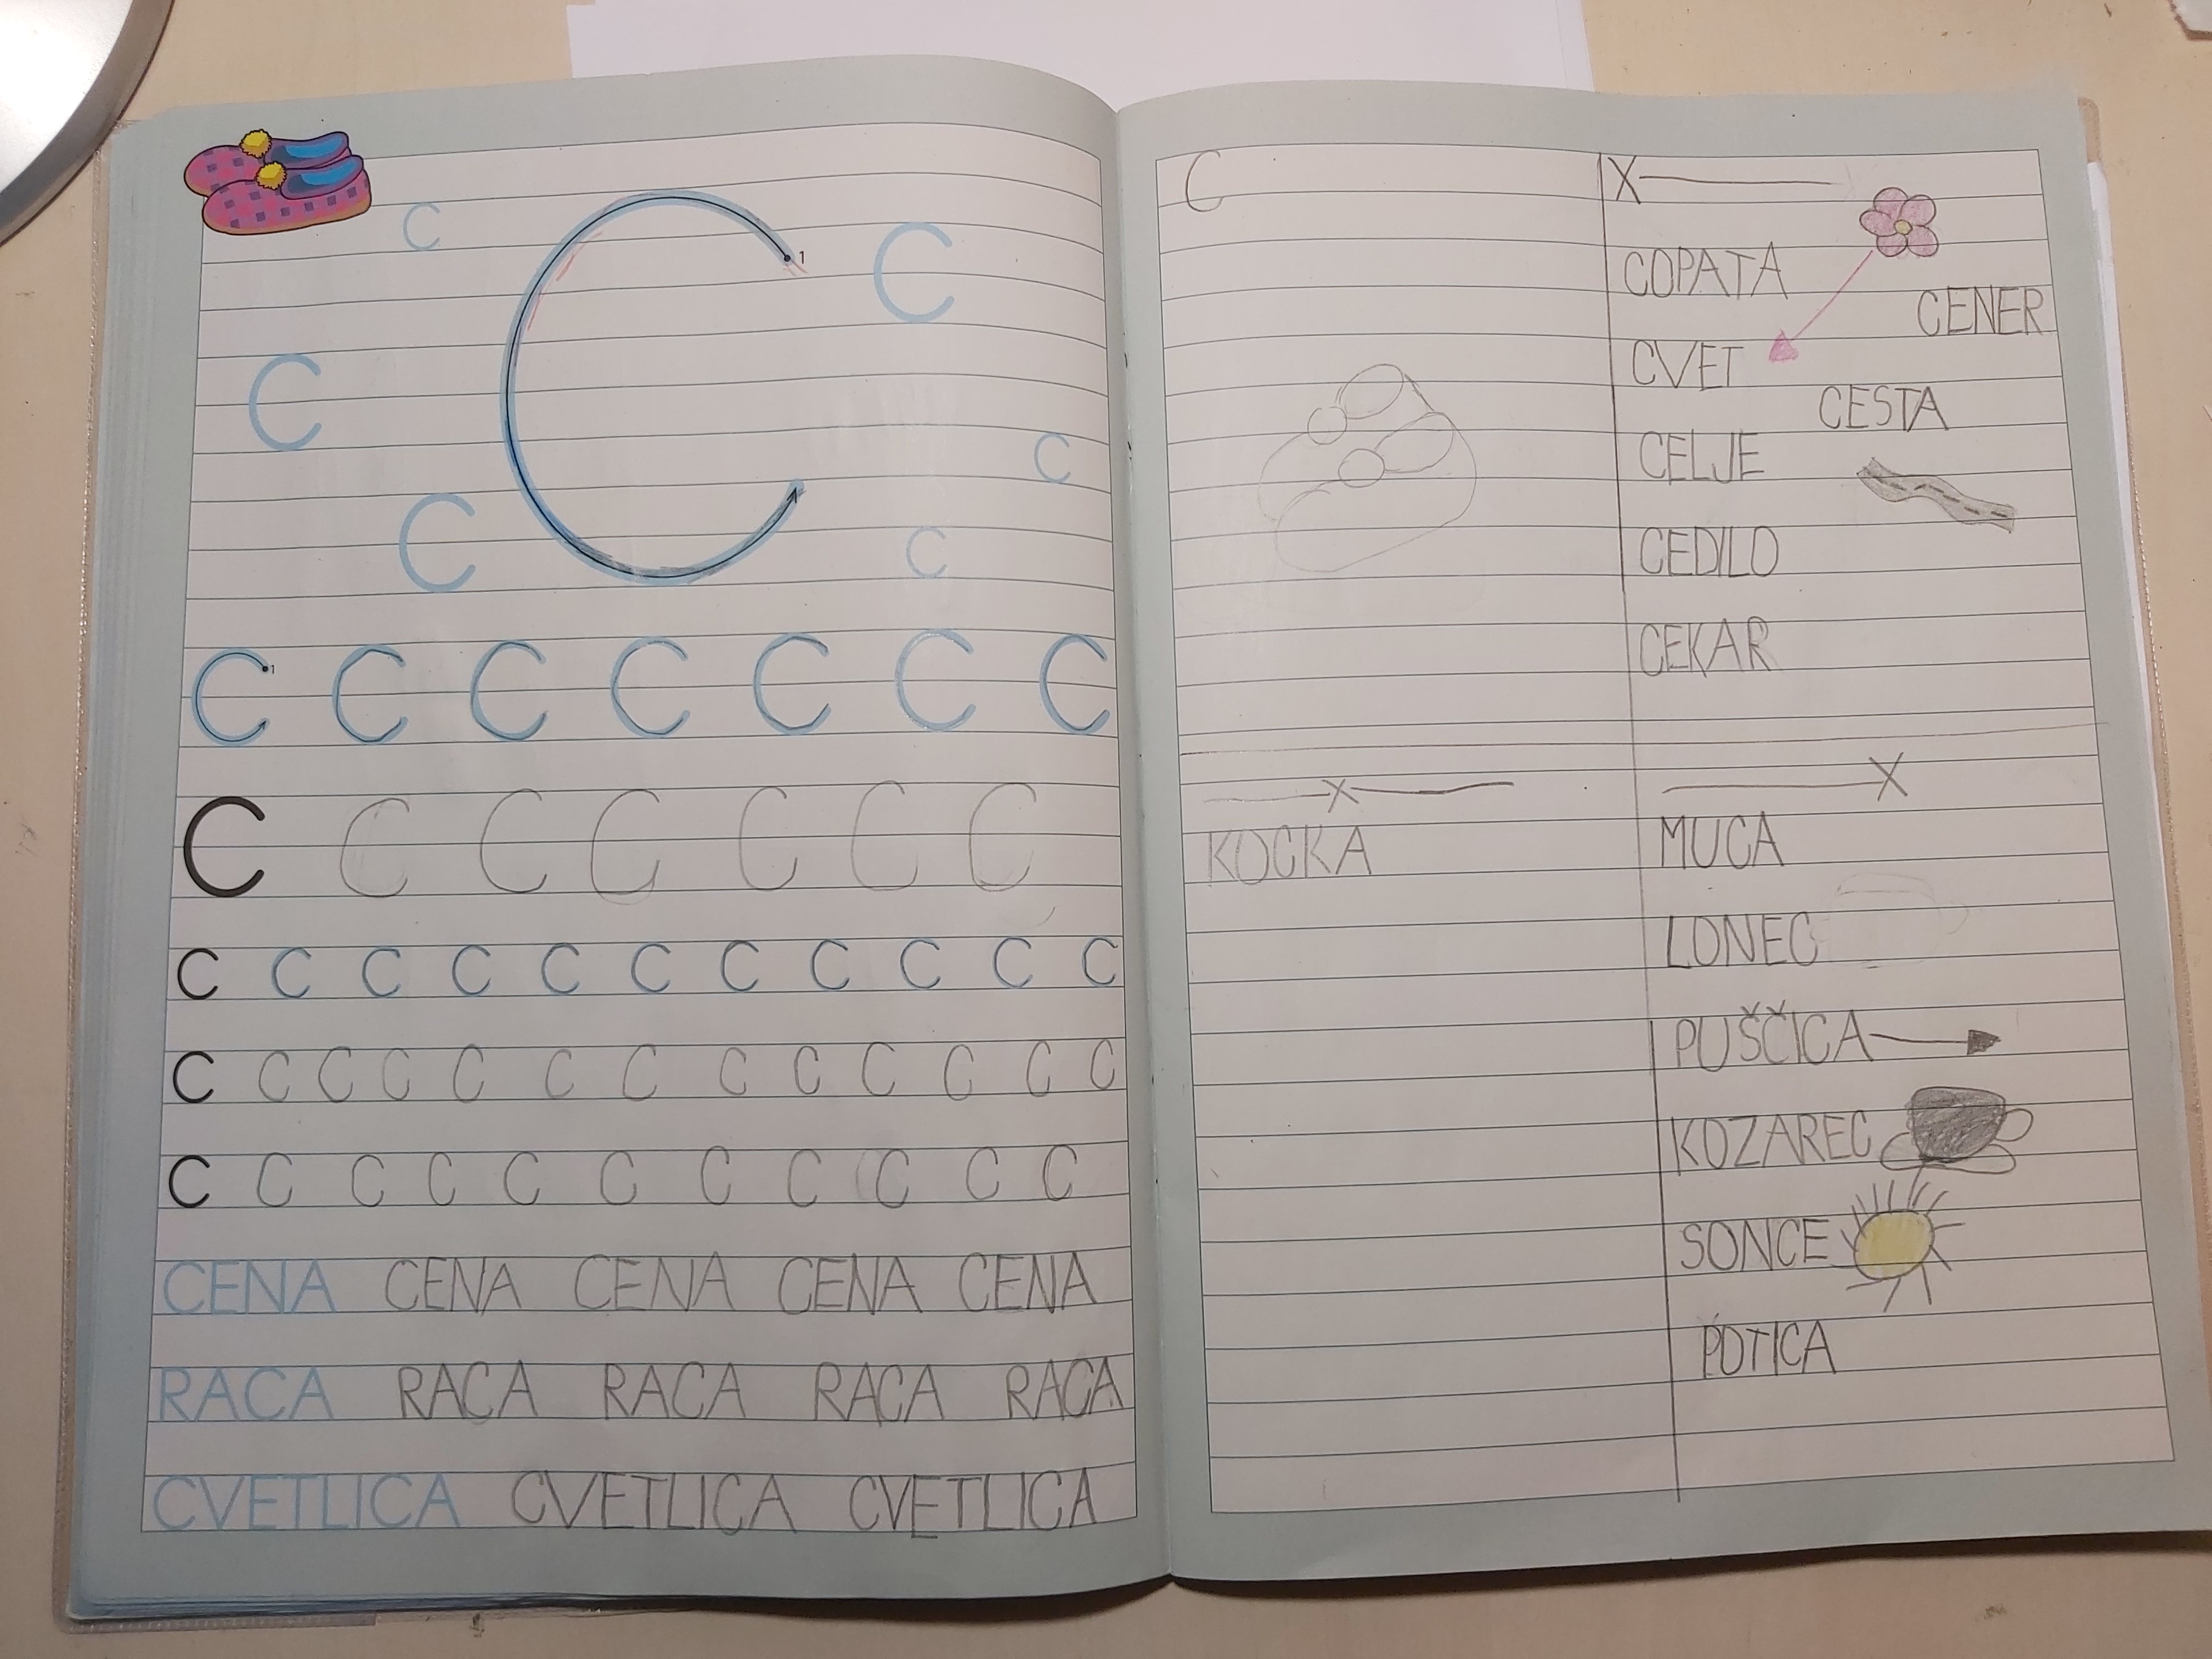 C
1
C
C
C
C
C
C
C 1 C C C C C C
C C C C C C C
C C C C C C C C C C C
C C C C C C C C C C C C C
C C C C C C C C C C C
CENA CENA CENA CENA CENA
RACA RACA RACA RACA RACA
CVETLICA CVETLICA CVETLICA
C
X
COPATA
CENER
CVET
CESTA
CELJE
CEDILO
CEKAR
X
KOCKA
X
MUCA
LONEC
PUŠČICA
KOZAREC
SONCE
POTICA